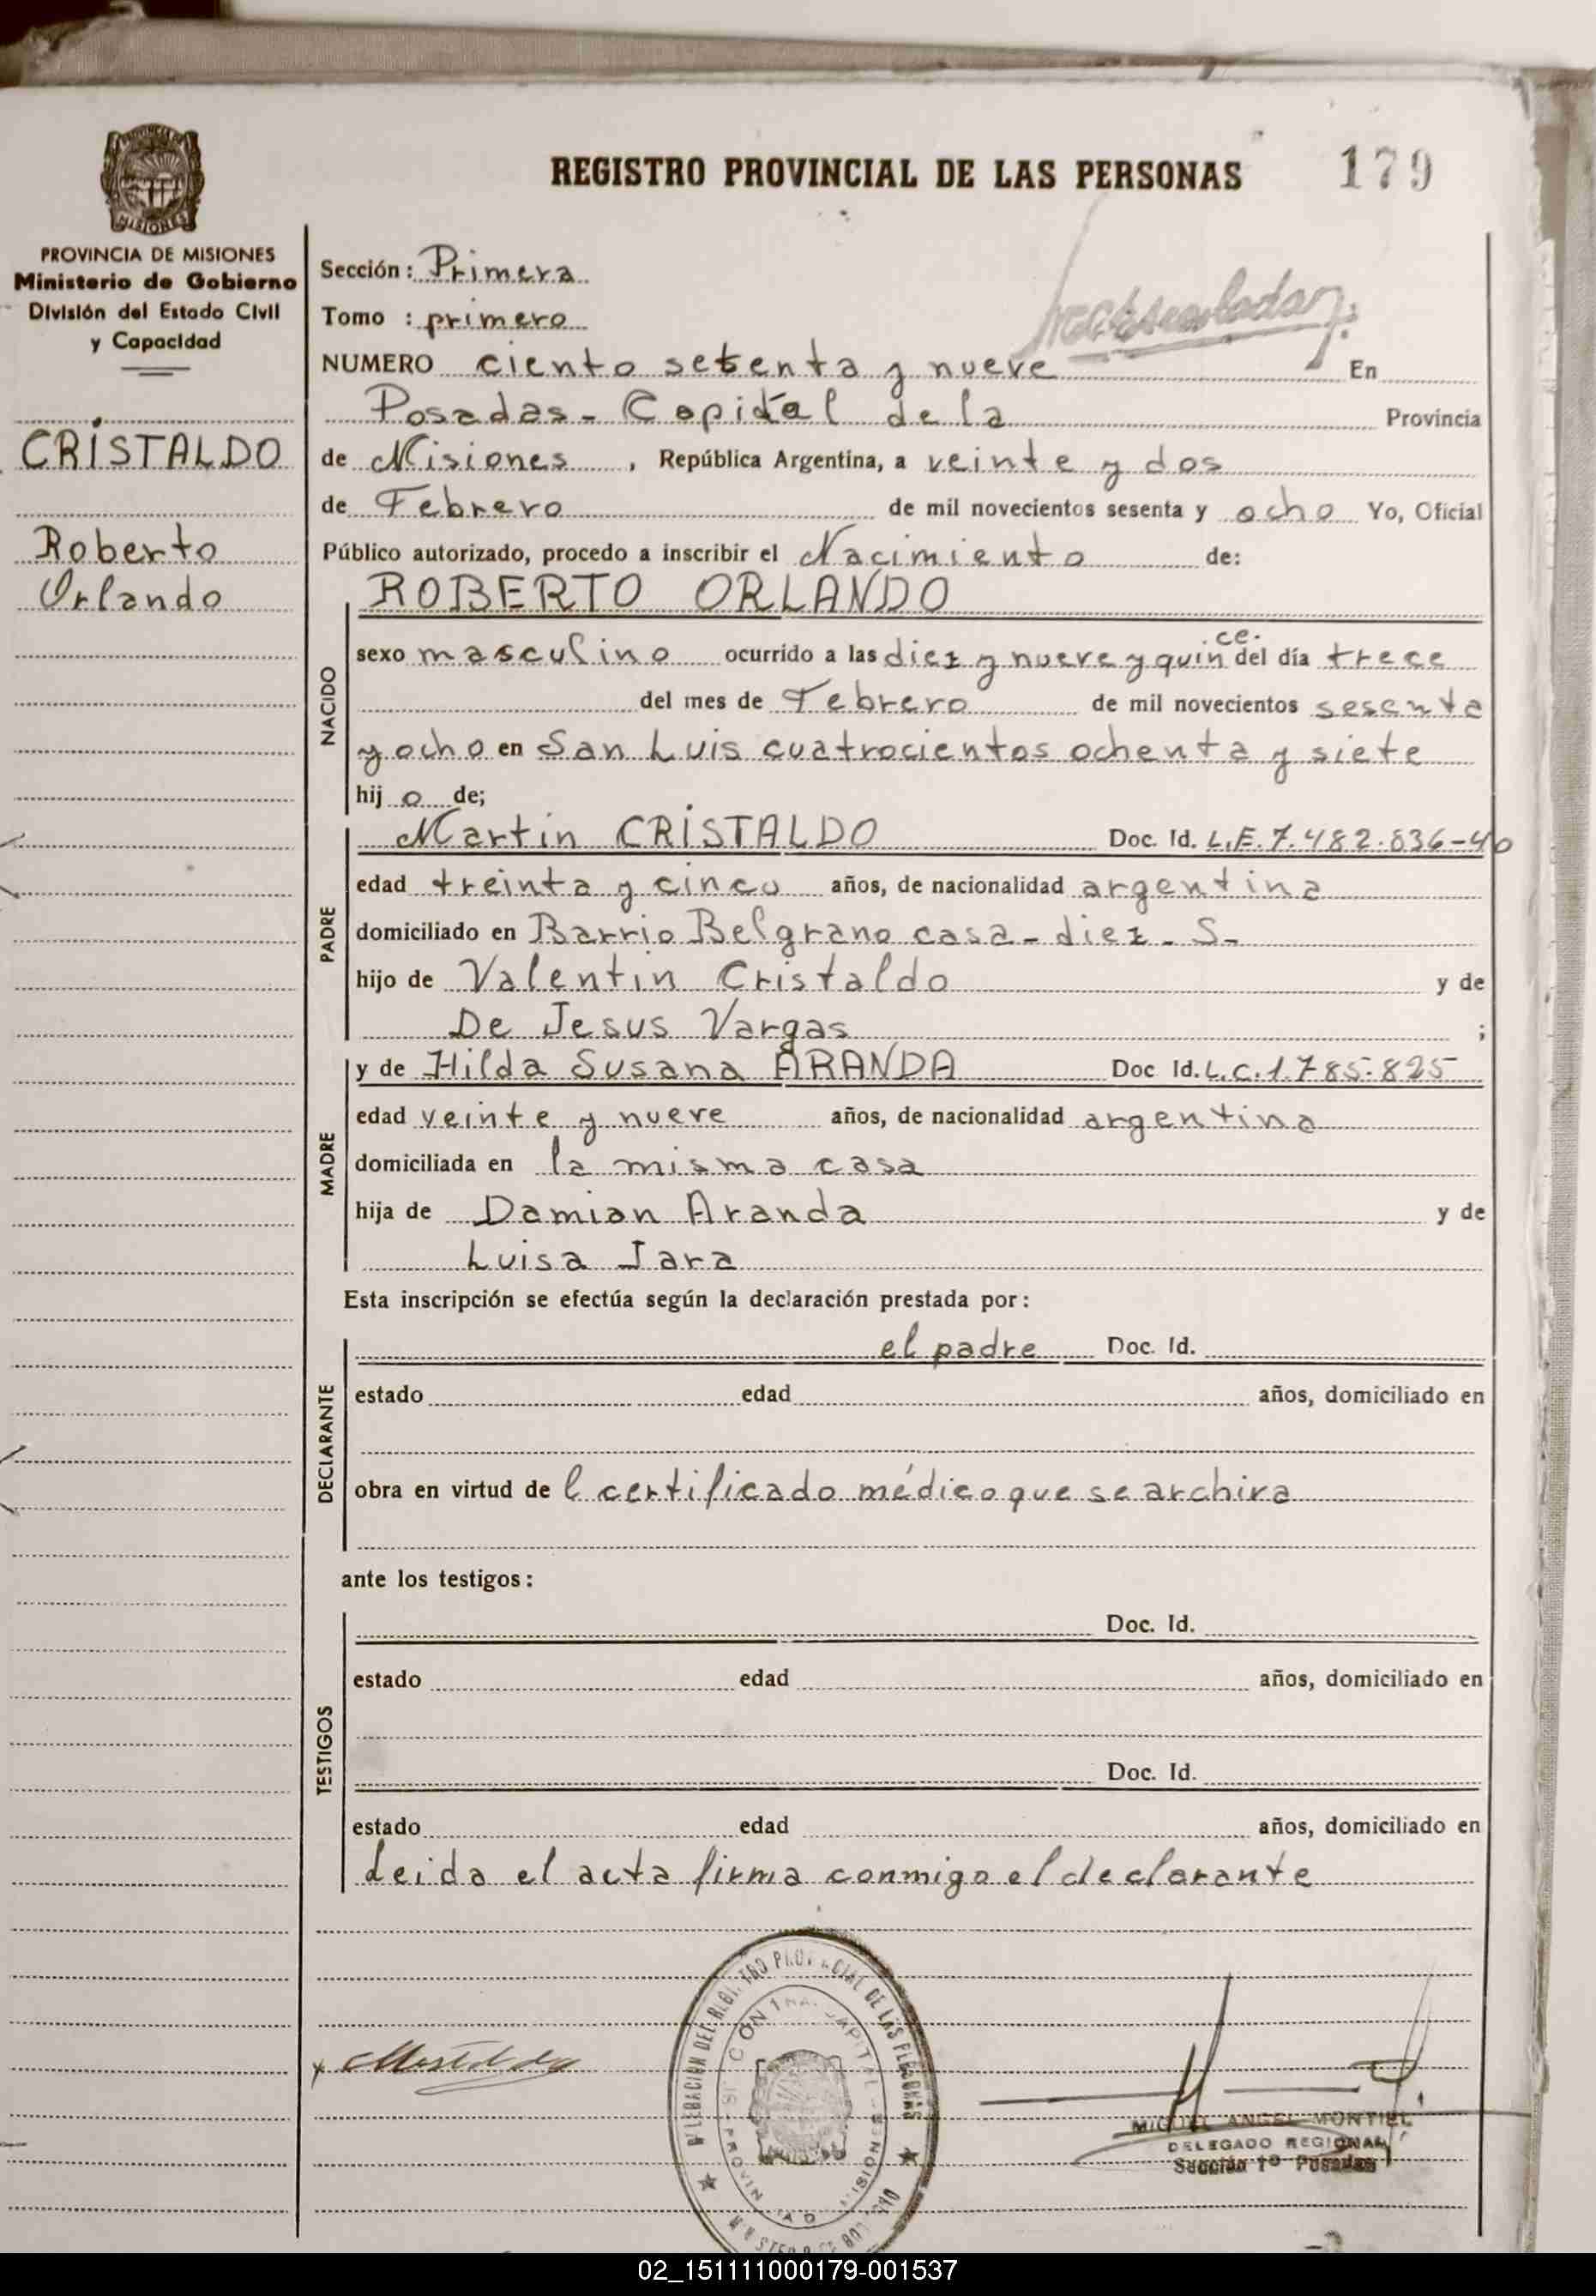 REGISTRO PROVINCIAL DE LAS PERSONAS 179
PROVINCIA DE MISIONES
MISIONES
PROVINCIA DE MISIONES
Ministerio de Gobierno
División del Estado Civil
y Capacidad
CRISTALDO
Roberto
Orlando
Sección: Primera
Tomo : primero
NUMERO ciento setenta y nueve En
Posadas - Capital de la Provincia
de Misiones, República Argentina, a veinte y dos
de Febrero de mil novecientos sesenta y ocho Yo, Oficial
Público autorizado, procedo a inscribir el Nacimiento de:
ROBERTO ORLANDO
NACIDO
sexo masculino ocurrido a las diez y nueve y quince del día trece
del mes de Febrero de mil novecientos sesenta
y ocho en San Luis cuatrocientos ochenta y siete
hijo de;
PADRE
Martin CRISTALDO Doc. Id. L.E.7.482.836-40
edad treinta y cinco años, de nacionalidad argentina
domiciliado en Barrio Belgrano casa - diez - S-
hijo de Valentin Cristaldo y de
De Jesus Vargas ;
MADRE
y de Hilda Susana ARANDA Doc Id. L.C.1.785.825
edad veinte y nueve años, de nacionalidad argentina
domiciliada en la misma casa
hija de Damian Aranda y de
Luisa Jara
Esta inscripción se efectúa según la declaración prestada por:
DECLARANTE
el padre Doc. Id.
estado edad años, domiciliado en
obra en virtud de l certificado médico que se archiva
ante los testigos:
TESTIGOS
Doc. Id.
estado edad años, domiciliado en
Doc. Id.
estado edad años, domiciliado en
Leida el acta firma conmigo el declarante
MIGUEL ANGEL MONTIEL
DELEGADO REGIONAL
Sección 1º Posadas
02_151111000179-001537